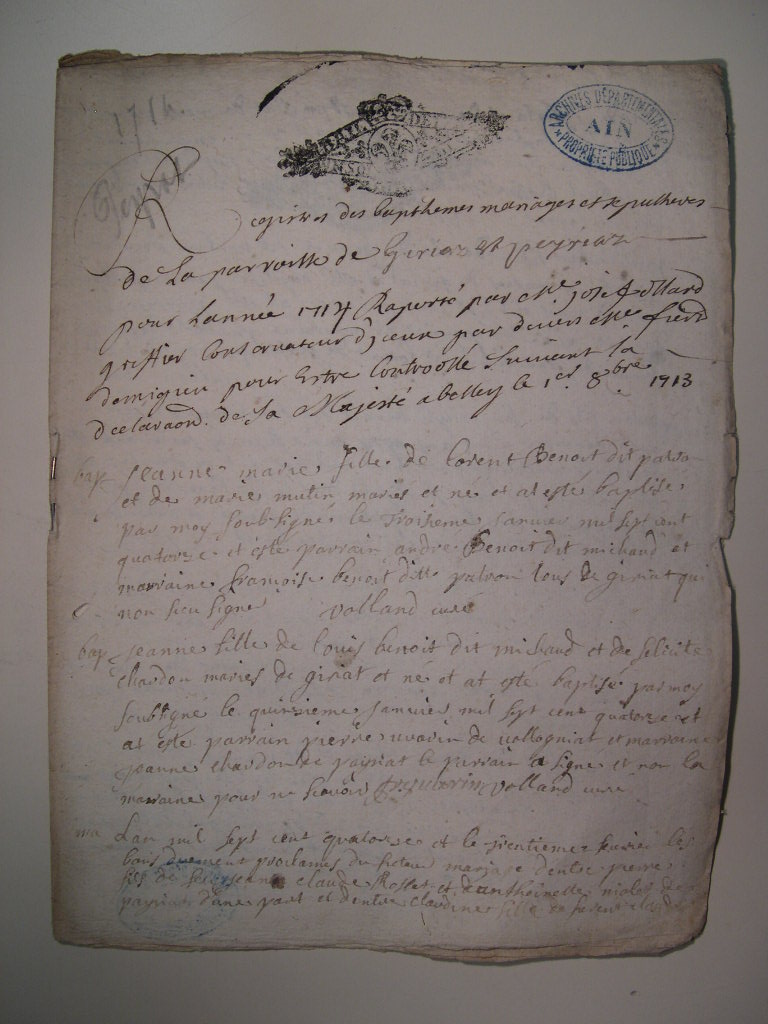 1714
ARCHIVES DÉPARTEMENTALES
AIN
PROPRIÉTÉ PUBLIQUE
Registres des bapthemes mariages et sepultures
de La parroisse de Giriaz et peyriaz
pour Lannée 1714 Raporté par Mre
greffier Conservateur
pour Estre Controollé Suivant la
declaraon. de Sa Majesté a belley le 1er 8bre 1713
bap jeanne marie fille de lorent Benoit dit patro
et de marie mutin mariés et né et at esté baptisé
par moy soubsigné le troisieme janvier mil sept cent
quatorze et esté parrain andre Benoit dit michaud et
marraine francoise benoit ditte patron tous de giriat qui
non sceu signe volland curé
bap jeanne fille de louis benoit dit michaud et de felicite
chardon mariés de giriat et né et at esté baptisé par moy
soubsigné le quinsieme janvier mil sept cent quatorze et
at esté parrain pierre de vollogniat et marraine
jeanne chardon de payriat le parrain a signe et non la
marraine pour ne scavoir volland curé
ma Lan mil sept cent quatorze et le le
bans duement proclamés du futeur mariage dentre pierre
fils de claude Rosset et danthoinette de
payriat dune part et dentre claudine fille de